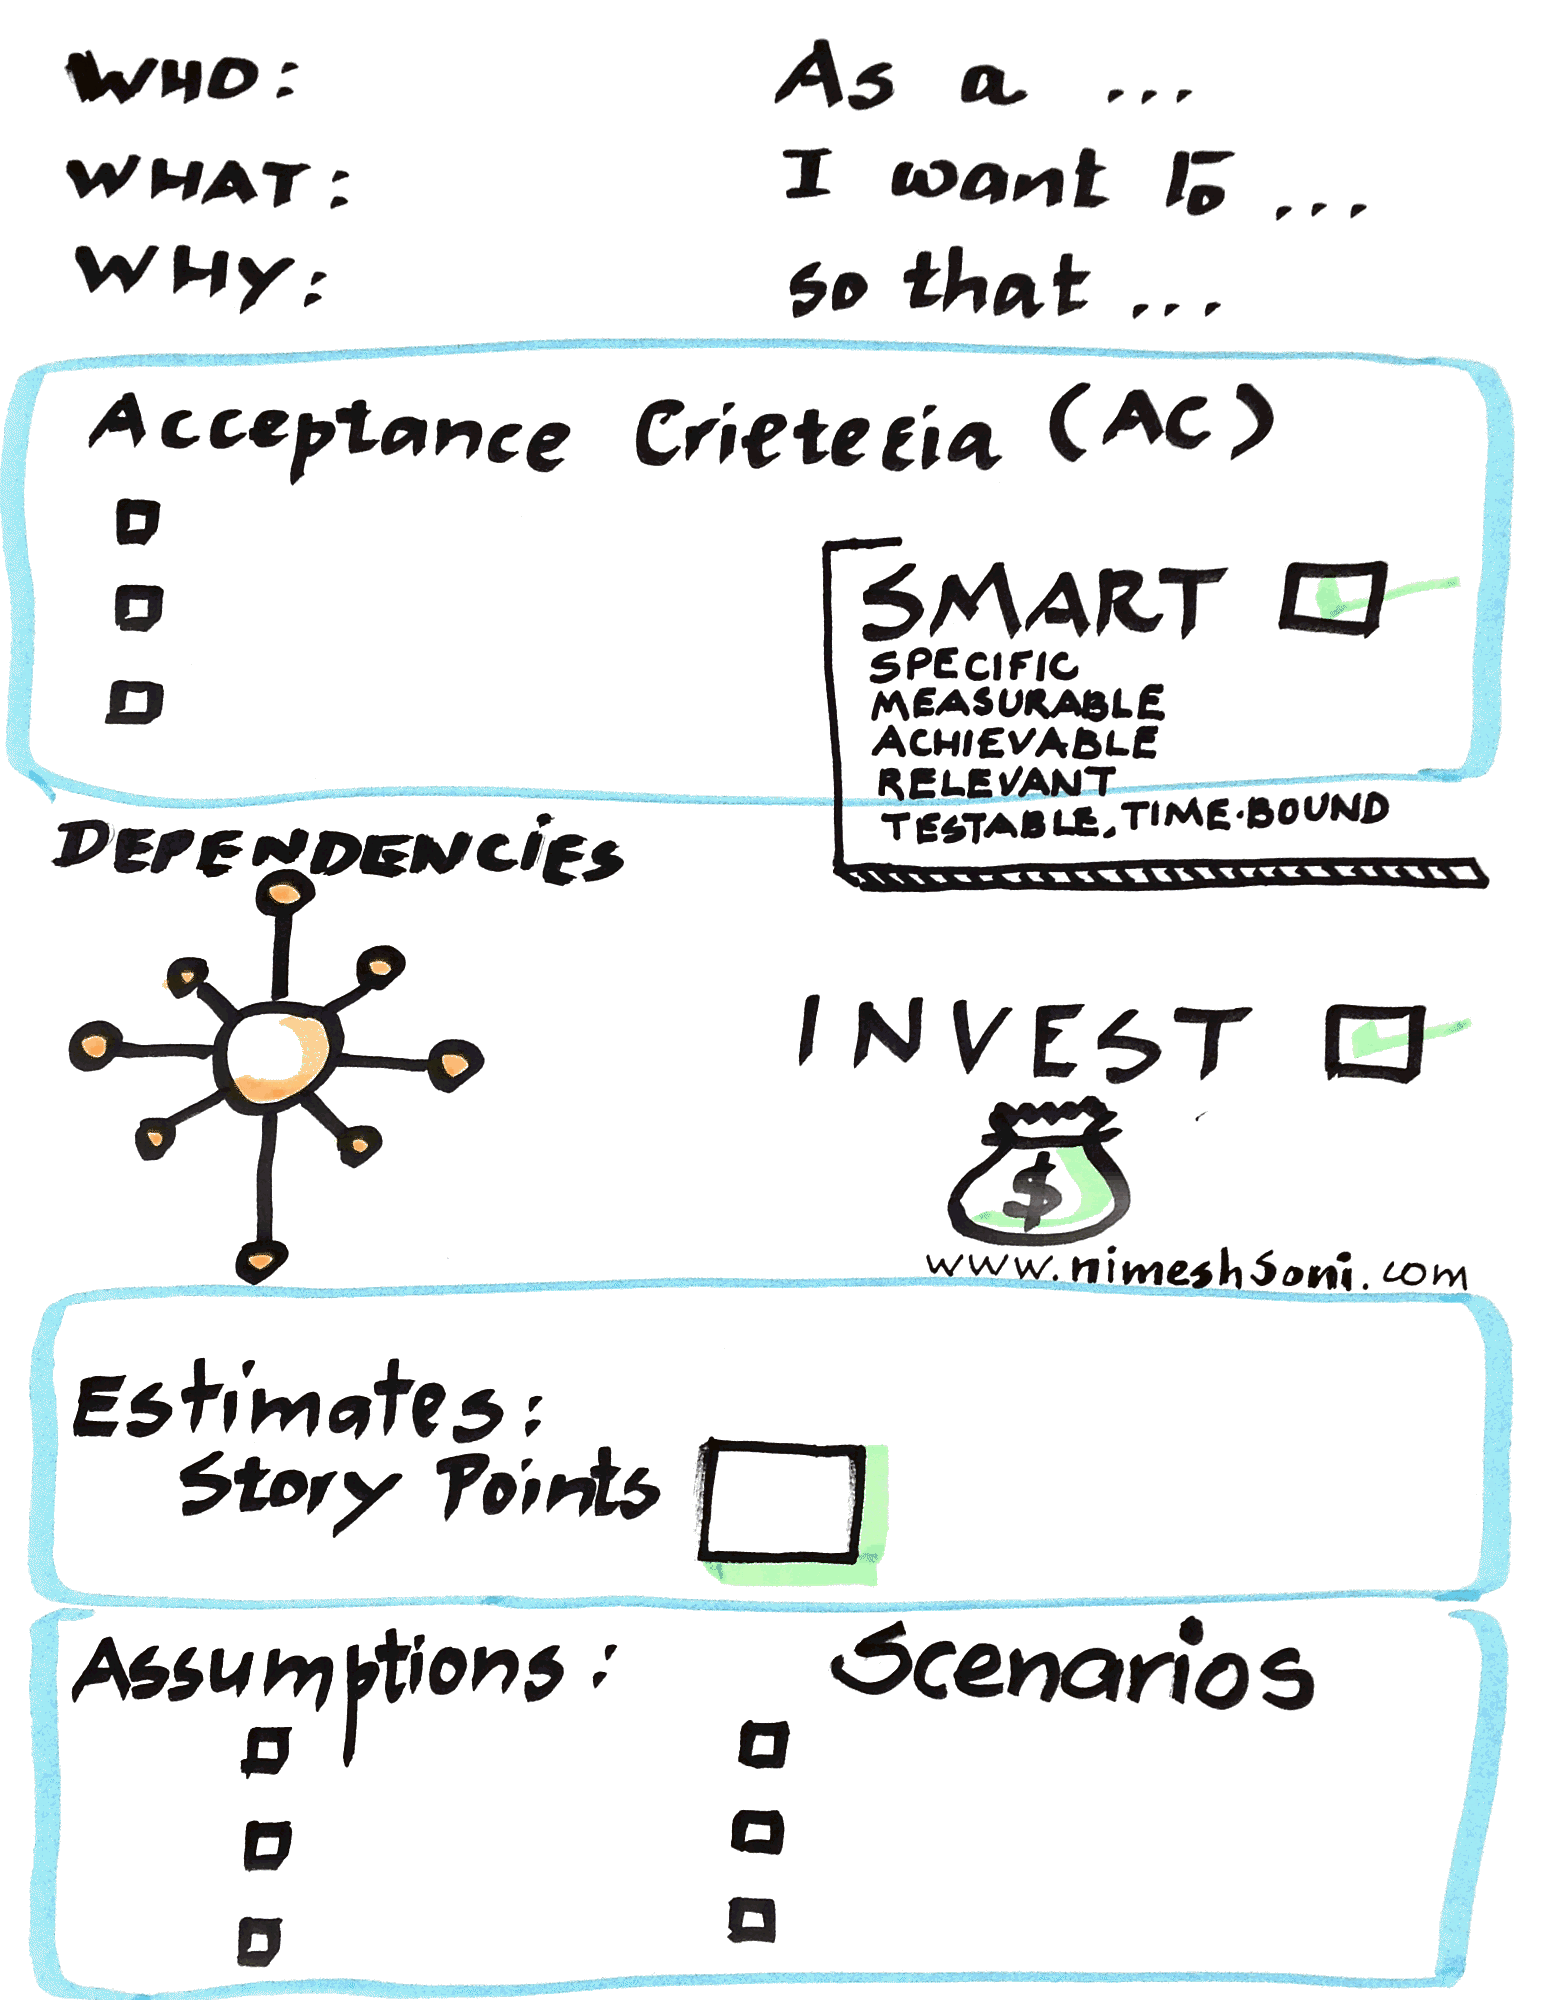 WHO: As a ...
WHAT: I want to ...
WHY: so that ...
Acceptance Crieteria (AC)
SMART
SPECIFIC
MEASURABLE
ACHIEVABLE
RELEVANT
TESTABLE, TIME-BOUND
DEPENDENCIES
INVEST
$
www.nimeshsoni.com
Estimates:
Story Points
Assumptions: Scenarios